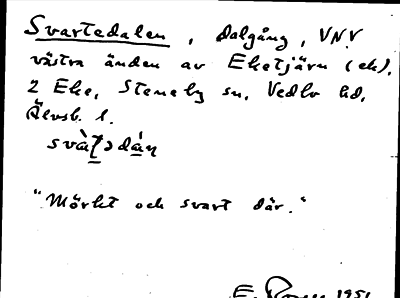 Svartedalen, dalgång, VNV
västra änden av Eketjärn (ek),
2 Eke, Steneby sn, Vedbo hd,
Älvsb. l.
"Mörkt och svart där."
E. 1951